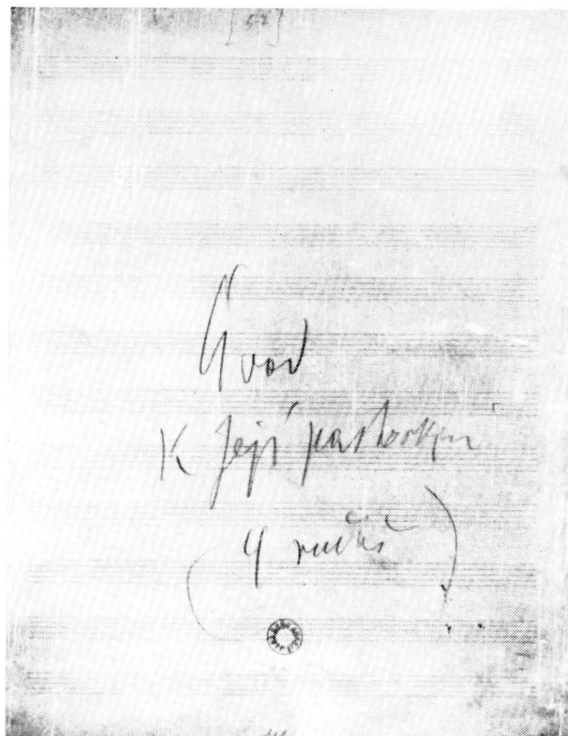 Úvod
k Její pastorkyni
(4 ruč